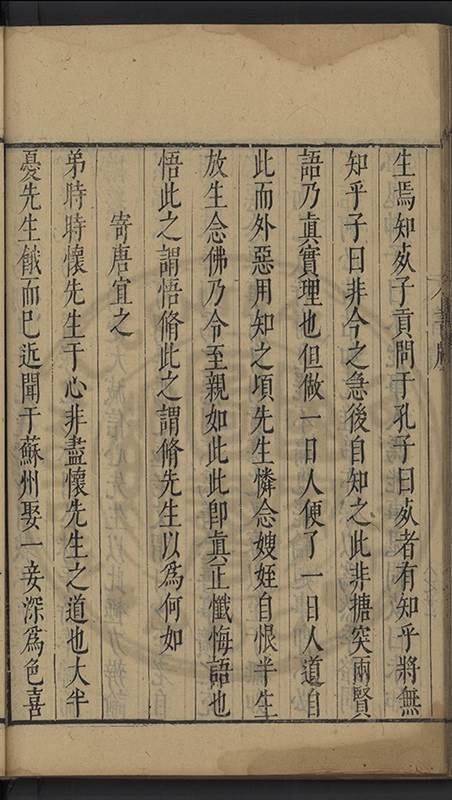 生焉知死子貢問于孔子曰死者有知乎將無
知乎子曰非今之急後自知之此非搪突兩賢
語乃真實理也但做一日人便了一日人道自
此而外惡用知之頃先生憐念嫂姪自恨半生
放生念佛乃令至親如此此即真正懺悔語也
悟此之謂悟脩此之謂脩先生以為何如
寄唐宜之
弟時時懷先生于心非盡懷先生之道也大半
憂先生餓而已近聞于蘇州娶一妾深為色喜